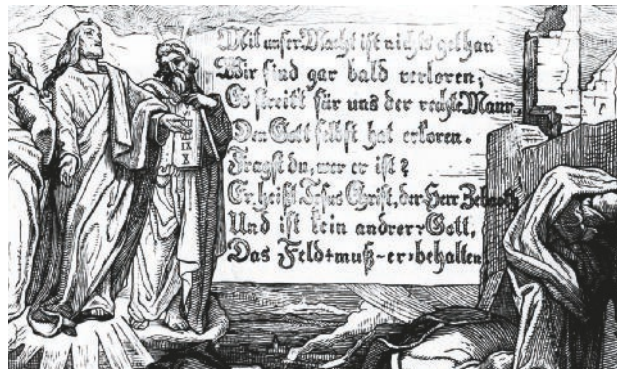 Mit unser Macht ist nichts gethan
Wir sind gar bald verloren;
Es streitt für uns der rechte Mann,
Den Gott selbst hat erkoren.
Fragst du, wer er ist?
Er heißt Jesus Christ, der Herr Zebaoth
Und ist kein andrer Gott,
Das Feld muß er behalten
VIII
IX
X